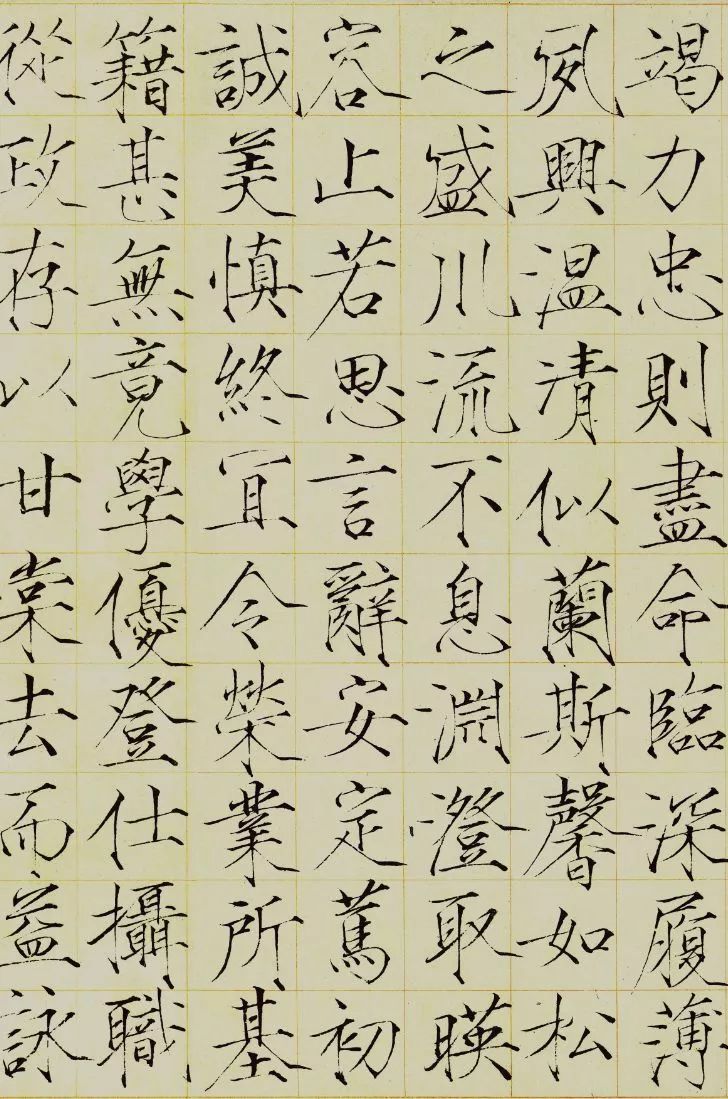 竭力忠則盡命臨深履薄
夙興温凊似蘭斯馨如松
之盛川流不息淵澄取暎
容止若思言辭安定篤初
誠美慎終宜令榮業所基
籍甚無竟學優登仕攝職
從政存以甘棠去而益詠